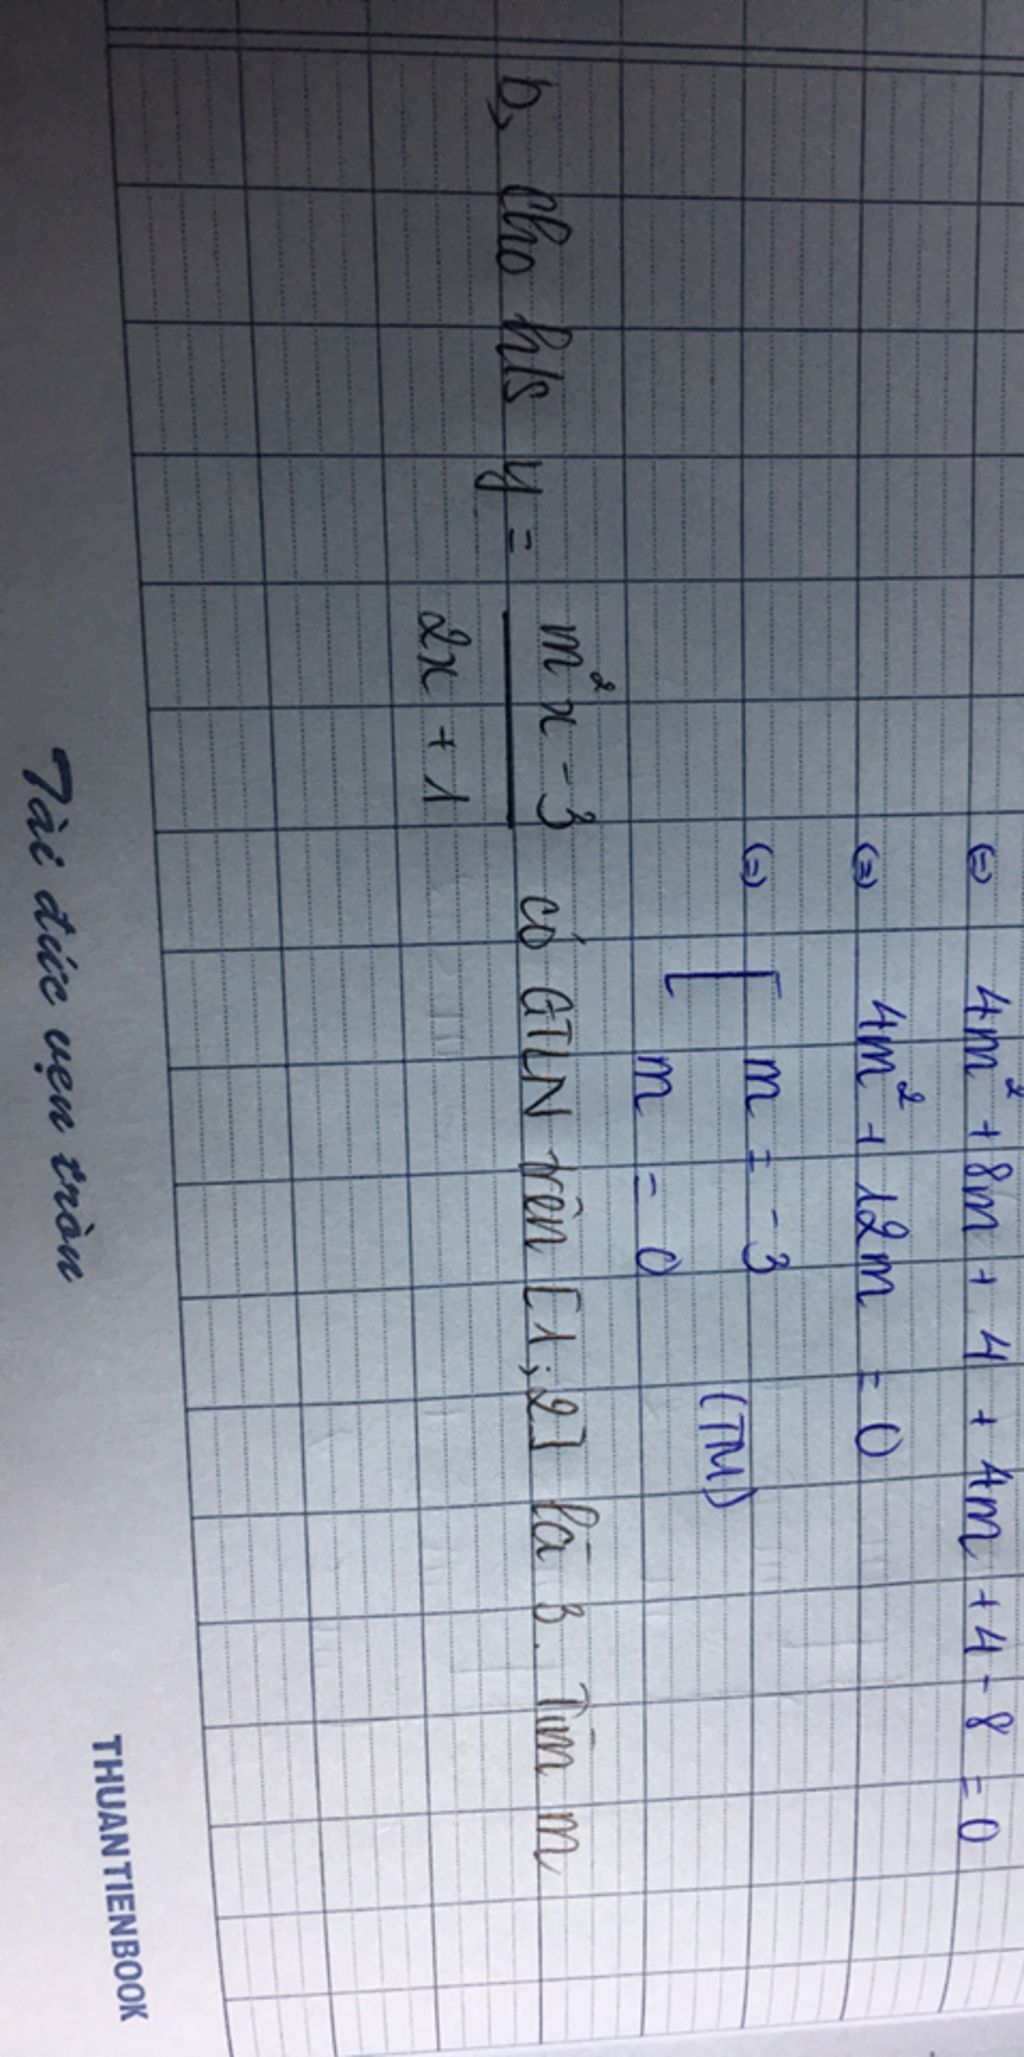 (=) 4m² + 8m + 4 + 4m + 4 - 8 = 0
(=) 4m² + 12m = 0
(=) [ m = -3
m = 0 (TM)
b, Cho h/s y = m²x - 3 / 2x + 1 có GTLN trên [1; 2] là 3. Tìm m
Tài đức vẹn tròn
THUANTIENBOOK